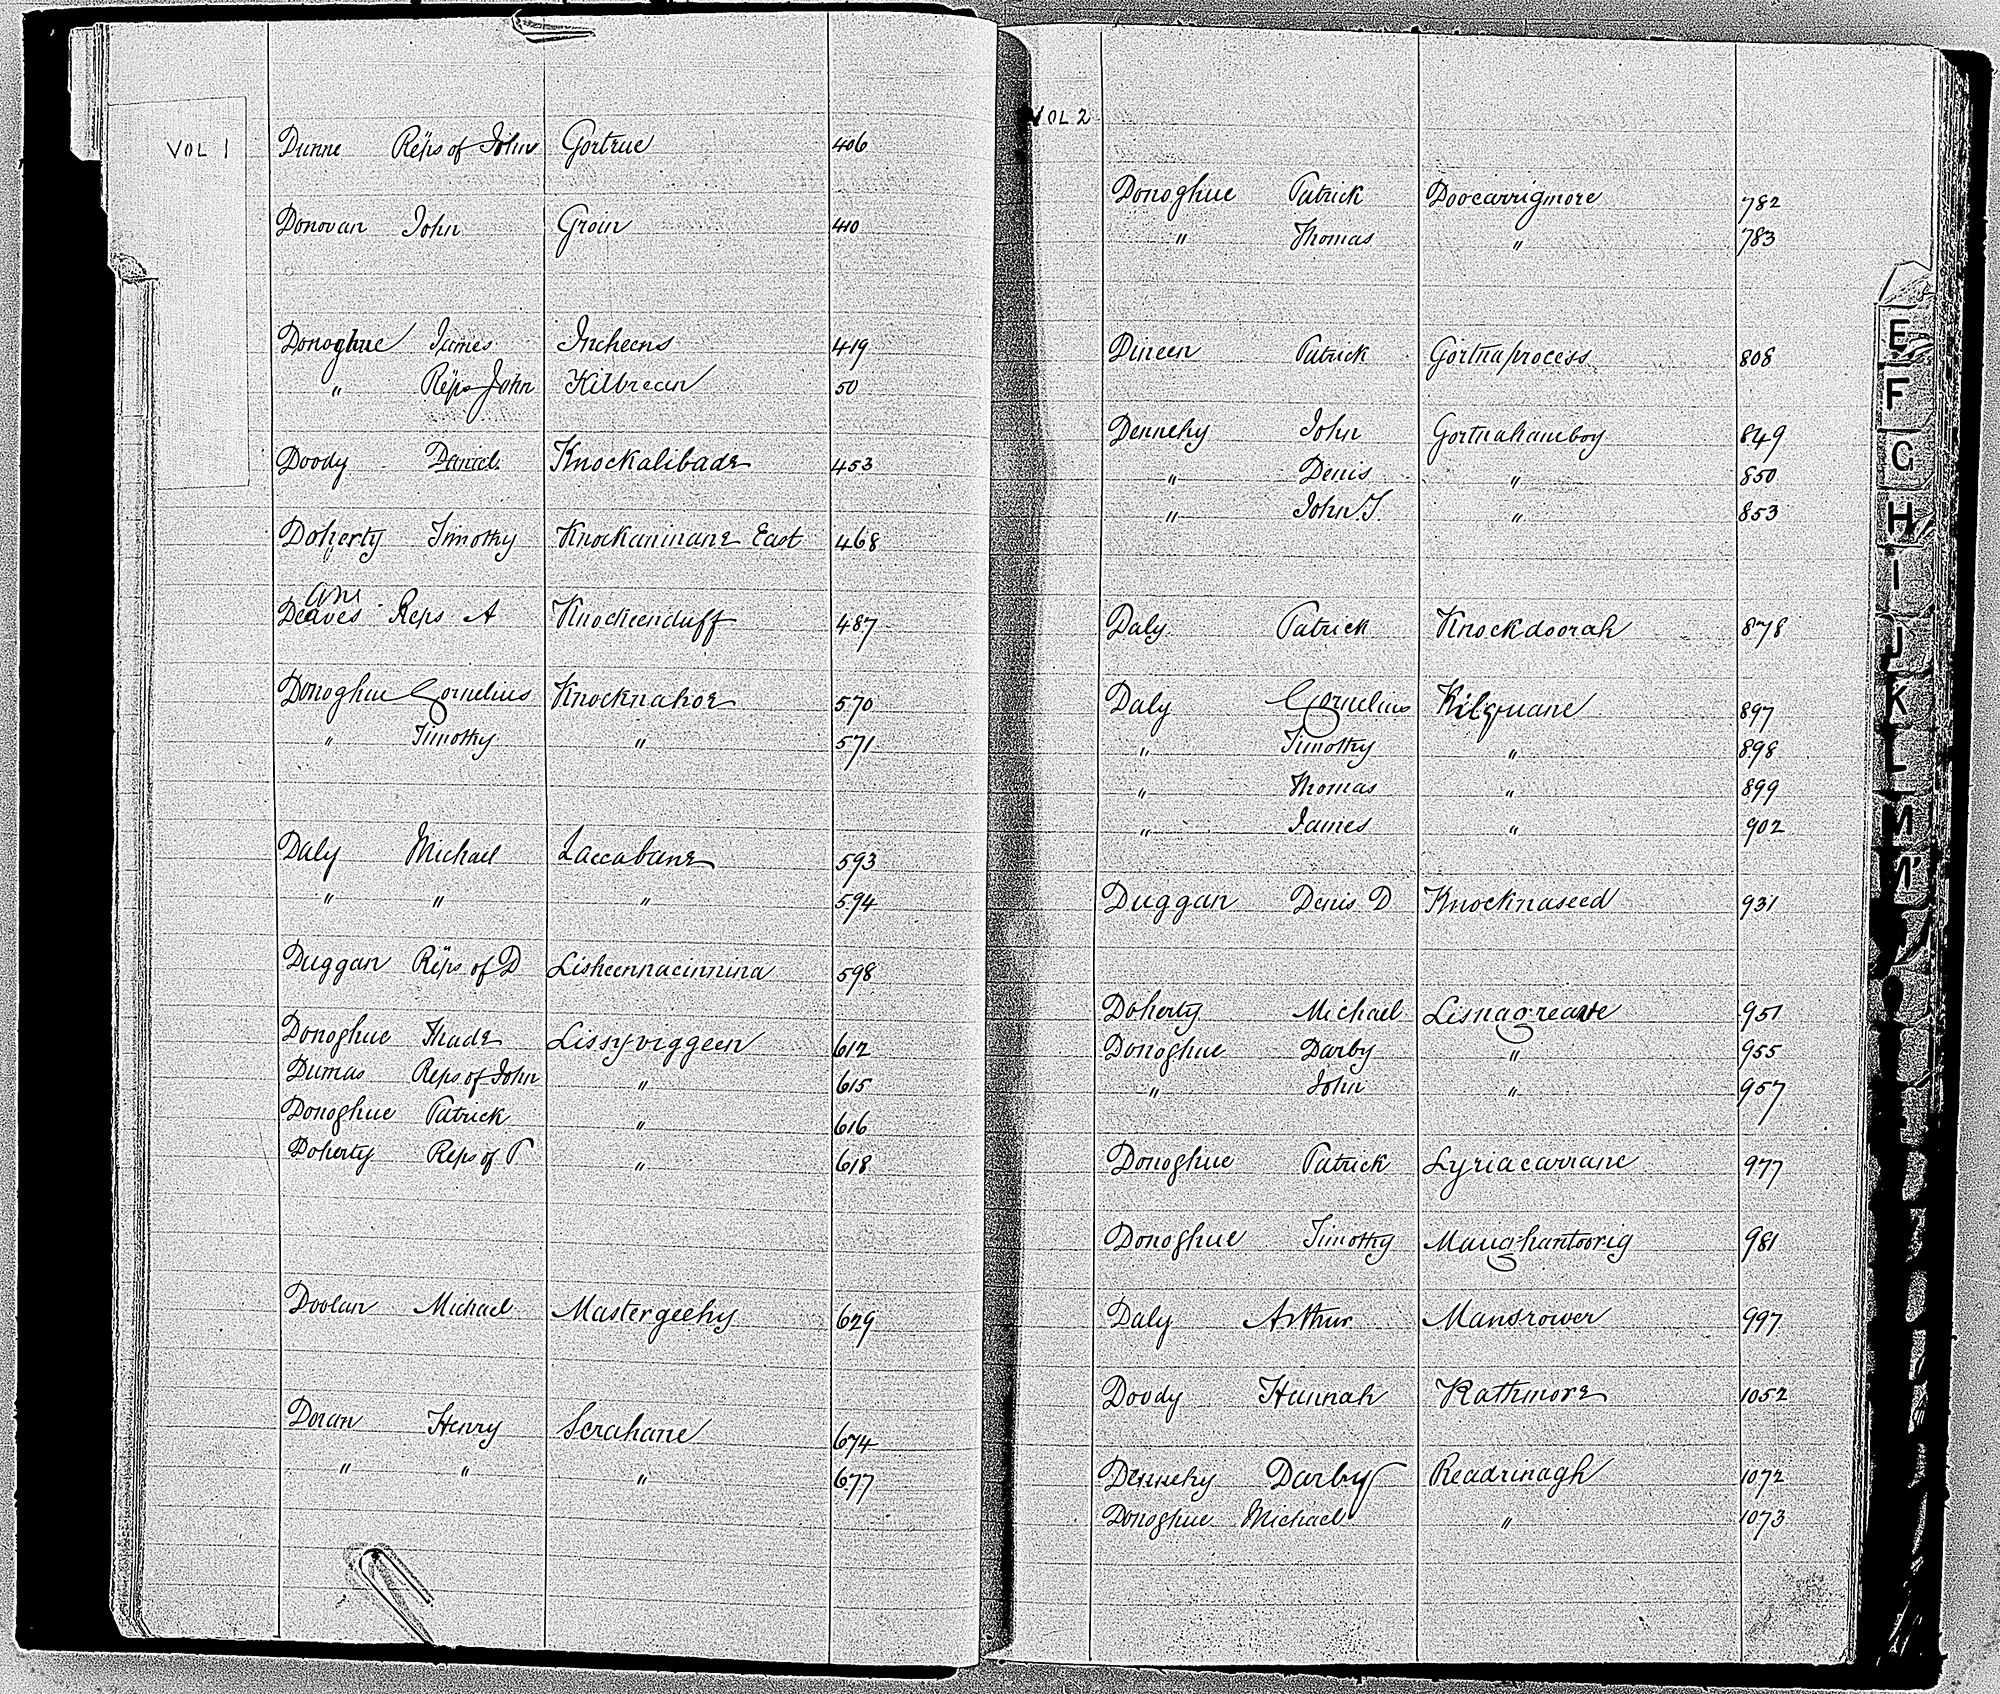 VOL 1
Dunne Reps of John Gortrue 406
Donovan John Groin 410
Donoghue James Incheens 419
" Reps John Kilbrean 50
Doody Daniel Knockalibade 453
Doherty Timothy Knockaninane East 468
Deaves Reps A Knockeenduff 487
Donoghue Cornelius Knocknahoe 570
" Timothy " 571
Daly Michael Laccabane 593
" " " 594
Duggan Reps of D Lisheennacinnina 598
Donoghue Thade Lissyviggeen 612
Dumas Reps of John " 615
Donoghue Patrick " 616
Doherty Reps of P " 618
Doolan Michael Mastergeehy 629
Doran Henry Scrahane 674
" " " 677
VOL 2
Donoghue Patrick Doocarrigmore 782
" Thomas " 783
Dineen Patrick Gortnaprocess 808
Dennehy John Gortnahamboy 849
" Denis " 850
" John J. " 853
Daly Patrick Knockdoorah 878
Daly Cornelius Kilquane 897
" Timothy " 898
" Thomas " 899
" James " 902
Duggan Denis D Knocknaseed 931
Doherty Michael Lisnagreave 951
Donoghue Darby " 955
" John " 957
Donoghue Patrick Lyriacarrane 977
Donoghue Timothy Maughantoorig 981
Daly Arthur Mansrower 997
Doody Hannah Rathmore 1052
Dennehy Darby Readrinagh 1072
Donoghue Michael " 1073
E
F
G
H
I
J
K
L
M